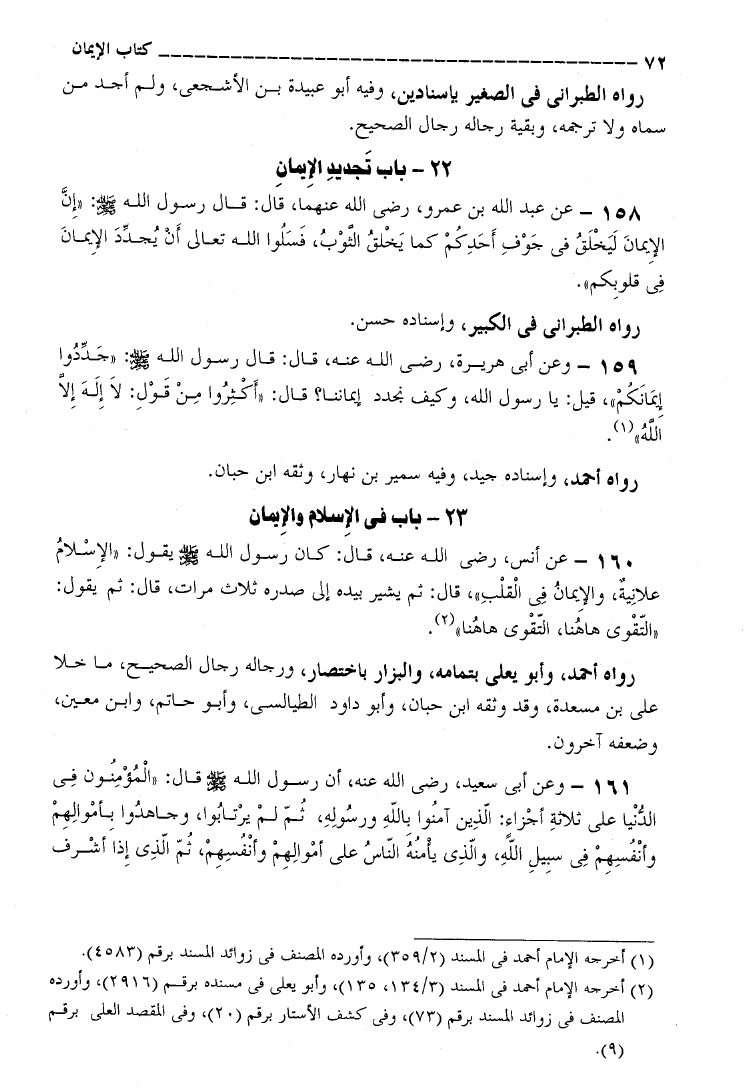 ٧٢ ــــــــــــــــــــــــــــــــــــــــــــــــــــــــــــ كتاب الإيمان
رواه الطبرانى فى الصغير بإسنادين، وفيه أبو عبيدة بـن الأشـجعى، ولـم أجـد مـن
سماه ولا ترجمه، وبقية رجاله رجال الصحيح.
٢٢ - باب تَجديدِ الإِيمانِ
١٥٨ - عن عبد الله بن عمرو، رضى الله عنهما، قال: قـال رسـول اللـه ﷺ: «إِنَّ
الإِيمانَ لَيَخْلَقُ فى جَوْفِ أَحَدِكُمْ كما يَخْلقُ الثَّوْبُ، فَسَلُوا اللـه تعـالى أَنْ يُجـدِّدَ الإِيمـانَ
فِى قلوبِكم».
رواه الطبرانى فى الكبير، وإسناده حسن.
١٥٩ - وعن أبى هريـرة، رضـى اللـه عنـه، قـال: قـال رسـول اللـه ﷺ: «جَـدِّدُوا
إِيمَانَكُمْ»، قيل: يا رسول الله، وكيف نجدد إيماننـا؟ قـال: «أَكْثِرُوا مِـنْ قَـوْلِ: لاَ إِلَـهَ إِلاَّ
اللَّهُ»(١).
رواه أحمد، وإسناده جيد، وفيه سمير بن نهار، وثقه ابن حبان.
٢٣ - باب فى الإِسلام والإِيمان
١٦٠ - عن أنس، رضى اللـه عنـه، قـال: كـان رسـول اللـه ﷺ يقـول: «الإِسْـلامُ
علانِيةٌ، والإِيمانُ فِى الْقلْبِ»، قال: ثم يشير بيده إلى صدره ثلاث مرات، قال: ثم يقول:
«التَّقْوى هاهُنا، التَّقْوى هاهُنا»(٢).
رواه أحمد، وأبو يعلى بتمامه، والبزار باختصار، ورجاله رجال الصحيـح، مـا خـلا
على بن مسعدة، وقد وثقه ابن حبان، وأبو داود الطيالسى، وأبـو حـاتم، وابـن معـين،
وضعفه آخرون.
١٦١ - وعن أبى سعيد، رضى الله عنه، أن رسـول اللـه ﷺ قـال: «الْمُؤْمِنُـون فِـى
الدُّنْيا على ثلاثةِ أجْزاءٍ: الّذِين آمنُوا بِاللَّهِ ورسُولِهِ، ثُـمَّ لـمْ يرْتـابُوا، وجـاهدُوا بـأمْوالِهِمْ
وأنْفُسِهِمْ فِى سبِيلِ اللَّهِ، والَّذِى يأْمنُهُ النّاسُ على أمْوالِهِمْ وأنْفُسِهِمْ، ثُمّ الّذِى إِذا أشْـرف
(١) أخرجه الإمام أحمد فى المسند (٣٥٩/٢)، وأورده المصنف فى زوائد المسند برقم (٤٥٨٣).
(٢) أخرجه الإمام أحمد فى المسند (١٣٤/٣، ١٣٥)، وأبو يعلى فى مسنده برقـم (٢٩١٦)، وأورده
المصنف فى زوائد المسند برقم (٧٣)، وفى كشف الأستار برقم (٢٠)، وفى المقصد العلى برقـم
(٩).